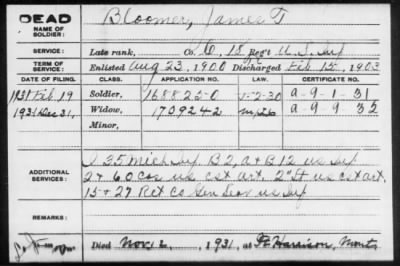 DEAD
NAME OF SOLDIER:
Bloomer, James T
SERVICE:
Late rank, Co. C, 15 Reg't U.S. Inf
TERM OF SERVICE:
Enlisted Aug 23, 1900 Discharged Feb 15, 1903
DATE OF FILING. CLASS. APPLICATION NO. LAW. CERTIFICATE NO.
1931 Feb 19 Soldier, 1-2-30 a-9-1-31
1931 Dec 31, Widow, 1709242 a-9-9 32
Minor,
ADDITIONAL SERVICES:
35 Mich Inf. B 2, A & B 12 us Inf
2 & 60 Cos us cst art. 2" us cst art.
15 & 27 Rct Co Gen Serv us Inf
REMARKS:
Died Nov. 2, 1931, at Ft Harrison, Mont.